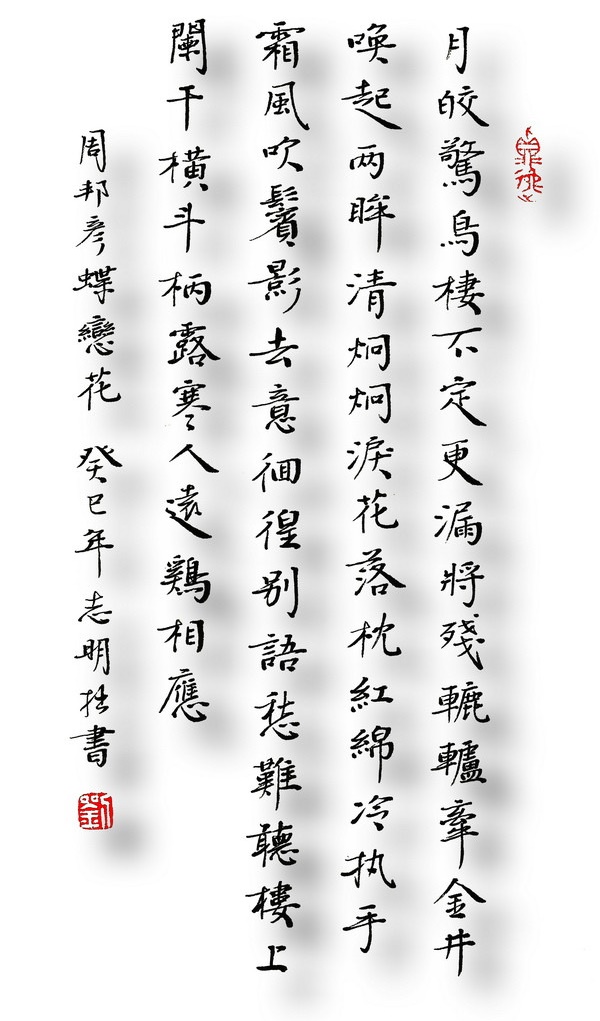 月皎驚烏棲不定更漏將殘轆轤牽金井
喚起两眸清炯炯淚花落枕紅綿冷执手
霜風吹鬢影去意徊徨别語愁難聽樓上
闌干橫斗柄露寒人遠鷄相應
周邦彥蝶戀花 癸巳年志明拙書
劉